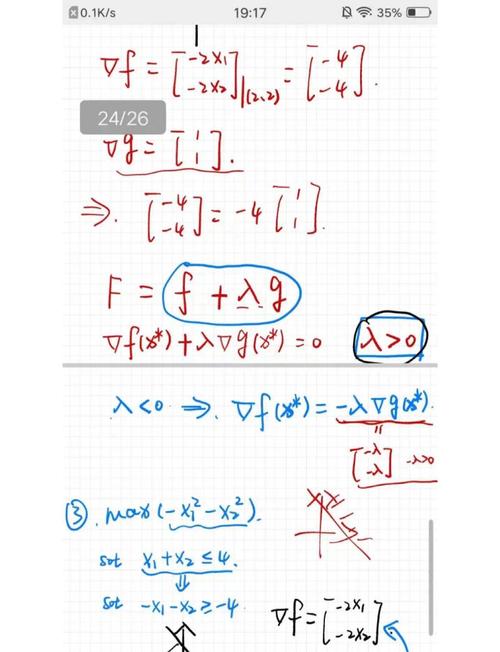 0.1K/s 19:17 35%
∇f = [-2x₁ -2x₂]|(2,2) = [-4 -4].
24/26
∇g = [1 1].
⇒. [-4 -4] = -4 [1 1].
F = f + λg
∇f(x*) + λ∇g(x*) = 0 λ>0
λ<0 ⇒. ∇f(x*) = -λ∇g(x*).
[-λ -λ] -λ>0
③. max(-x₁²-x₂²).
s.t x₁+x₂ ≤ 4.
s.t -x₁-x₂ ≥ -4
∇f = [-2x₁ -2x₂]